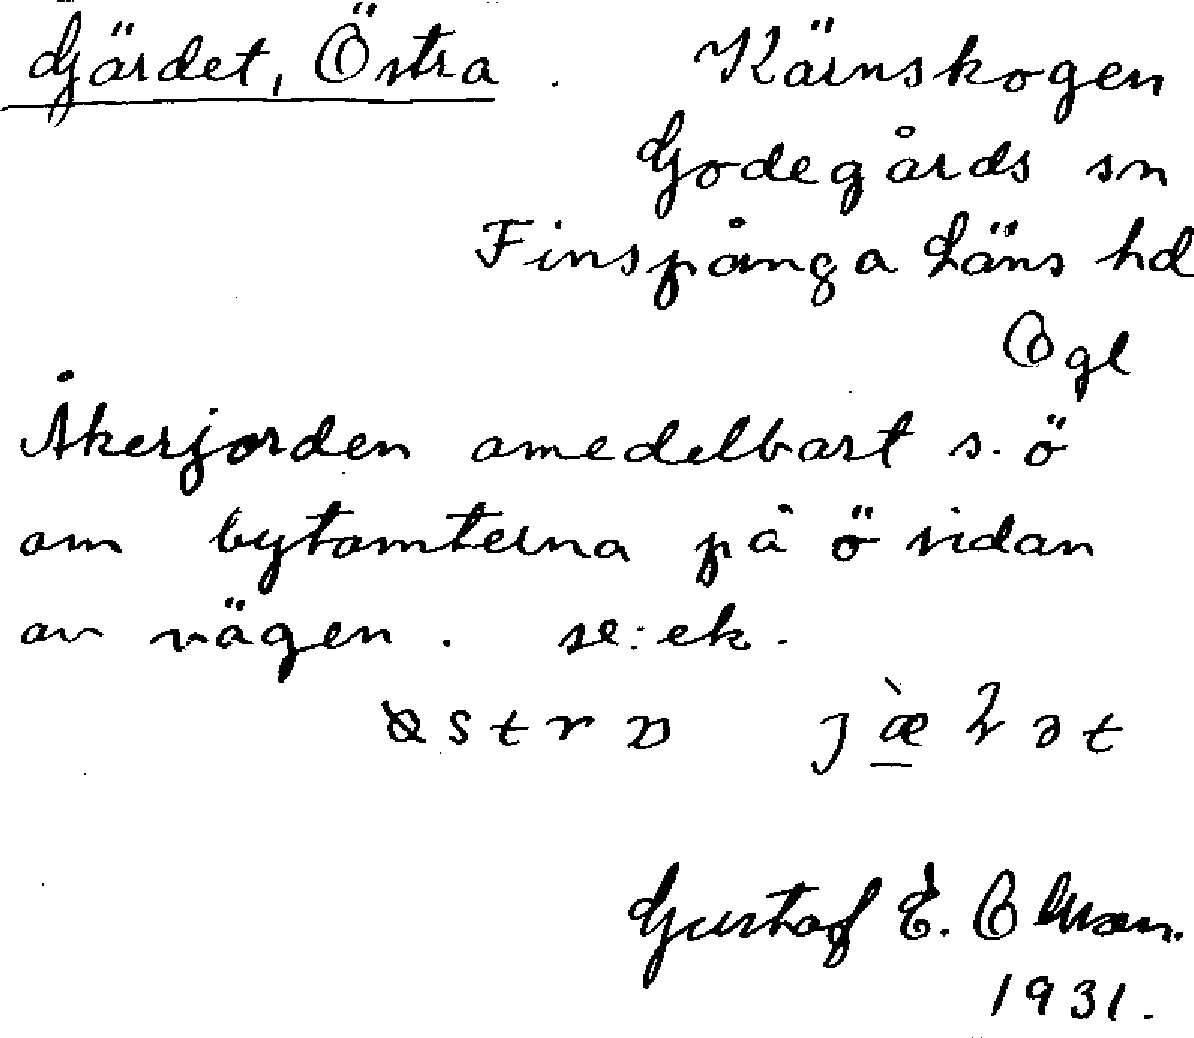 Gärdet, Östra. Kärnskogen
Godegårds sn
Finspånga Läns hd
Ögl
Åkerjorden omedelbart s. ö
om bytomterna på ö sidan
av vägen. se: ek.
Gustaf E. Olsson.
1931.